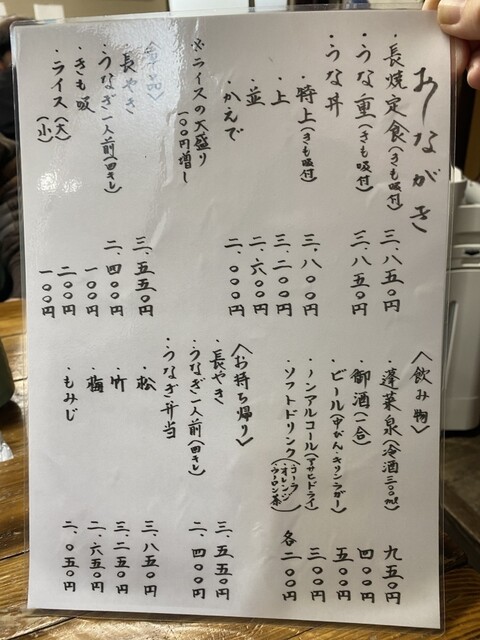 おしながき
・長焼定食（きも吸付） 三、八五〇円
・うな重（きも吸付） 三、八五〇円
・うな丼
・特上（きも吸付） 三、八〇〇円
・上 三、二〇〇円
・並 二、六〇〇円
・かえで 二、〇〇〇円
※ライスの大盛り
一〇〇円増し
・長やき 三、五五〇円
・うなぎ一人前（四キレ） 二、四〇〇円
・きも吸 一〇〇円
・ライス（大） 二〇〇円
（小） 一〇〇円
〈飲み物〉
・蓬莱泉（冷酒三〇〇ml） 九五〇円
・御酒（一合） 四〇〇円
・ビール（中びん・キリンラガー） 五〇〇円
・ノンアルコール（アサヒドライ） 三〇〇円
・ソフトドリンク（・コーラ ・オレンジ ・ウーロン茶） 各二〇〇円
〈お持ち帰り〉
・長やき 三、五五〇円
・うなぎ一人前（四キレ） 二、四〇〇円
・うなぎ弁当
・松 三、八五〇円
・竹 三、二五〇円
・梅 二、六五〇円
・もみじ 二、〇五〇円